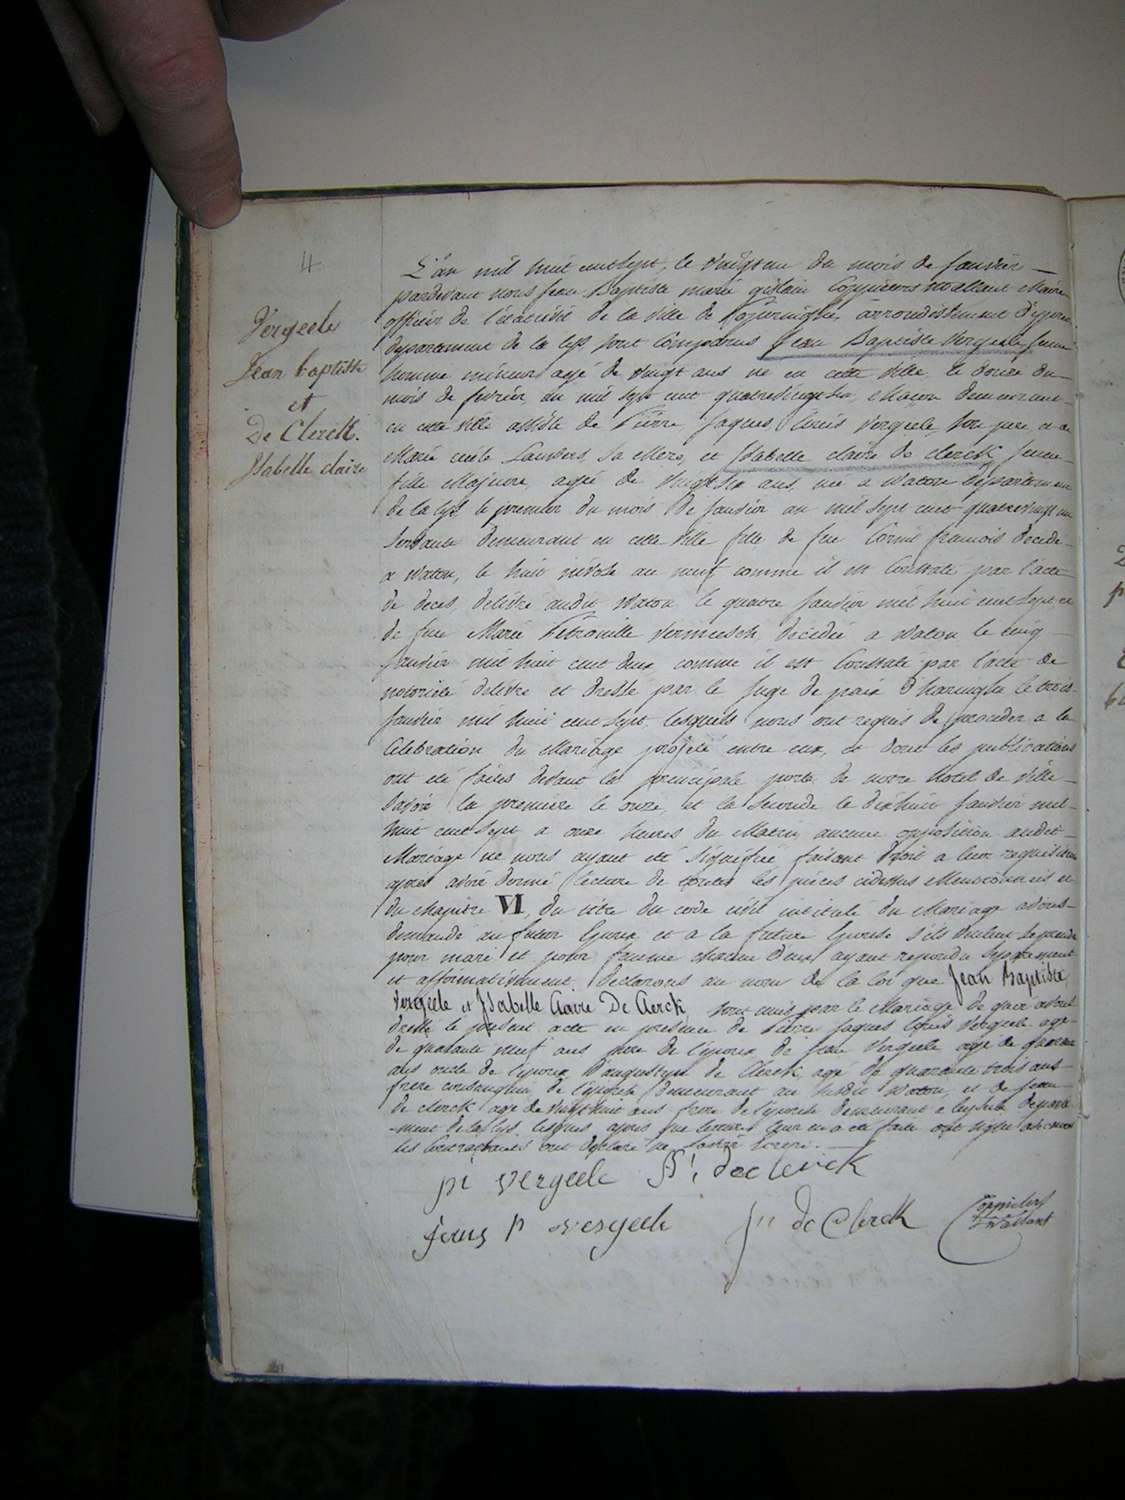 4
Vergeele
Jean baptiste
et
De Clerck.
Isabelle claire
L'an mil huit cent sept, le vingt un du mois de Janvier
pardevant nous Jean Baptiste marie gislain Maire
officier de l'état civil de la ville de arrondissement d'ypres
departement de la Lys sont comparus Jean Baptiste Vergeele Jeune
homme mineur agé de vingt ans né en cette ville le douze du
mois de fevrier, an mil sept cent quatrevingt six, Maçon demeurant
en cette ville assisté de Pierre Jaques Louis Vergeele, son pere, et de
Marie Sanders, sa Mere, et Isabelle claire de clerck Jeune
fille Majeure, agée de vingt six ans, née a Watou departement
de la Lys le premier du mois de Janvier an mil sept cent quatrevingt un
Servante demeurant en cette ville fille de feu Cornil francois decedé
a Watou, le huit nivôse an neuf comme il est Constaté par l'acte
de deces, delivré audit Watou le quatre Janvier mil huit cent sept, et
de feue Marie Petronille Vermeesch decedée a Watou le cinq
Janvier mil huit cent deux comme il est Constaté par l'acte de
notorieté delivré et dressé par le Juge de paix d'haringhe le trois
Janvier mil huit cent sept, lesquels nous ont requis de proceder a la
Celebration du Mariage projeté entre eux, et dont les publications
ont été faites devant la principale porte de notre hotel de ville
Savoir la premiere le onze, et la Seconde le dixhuit Janvier mil
huit cent sept a onze heures du Matin aucune opposition audit
Mariage ne nous ayant été signifiée, faisant droit a leur requisition
apres avoir donné lecture de toutes les pièces cidessus Mentionnées et
du chapitre VI, du titre du code civil intitulé du Mariage avons
demandé au futur Epoux et a la future Epouse s'ils veulent se prendre
pour mari et pour femme chacun d'eux ayant repondu separement
et affirmativement, Declarons au nom de la loi que Jean Baptiste
Vergeele et Isabelle Claire De Clerck, sont unis par le Mariage de quoi avons
dressé le present acte en presence de Pierre Jaques Louis Vergeele agé
de quarante neuf ans pere de l'epoux de Jean Vergeele agé de quarante
ans oncle de l'epoux D'augustyn de Clerck, agé de quarante trois ans
frere consanguin de l'epouse demeurant au susdit Watou, et de Jean
de clerck agé de vingt huit ans frere de l'epouse demeurant a departe
-ment de la Lys, lesquels, apres que lecture leur en a été faite ont signé avec nous
les Contractants ont declaré ne savoir ecrire.
pi vergeele A: declerck
p vergeele Jn de Clerck